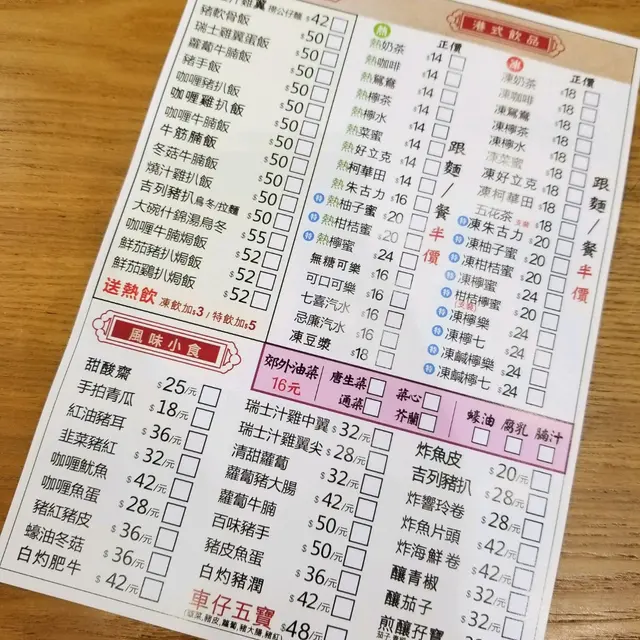 汁雞翼 撈公仔麵 $42
豬軟骨飯 $50
瑞士雞翼蛋飯 $50
蘿蔔牛腩飯 $50
豬手飯 $50
咖喱豬扒飯 $50
咖喱雞扒飯 $50
咖喱牛腩飯 $50
牛筋腩飯 $50
冬菇牛腩飯 $50
燒汁雞扒飯 $50
吉列豬扒烏冬/拉麵 $50
大碗什錦湯烏冬 $55
咖喱牛腩焗飯 $52
鮮茄豬扒焗飯 $52
鮮茄鷄扒焗飯 $52
送熱飲 凍飲加$3 / 特飲加$5
港式飲品
熱 正價
熱奶茶 $14
熱咖啡 $14
熱鴛鴦 $14
熱檸茶 $14
熱檸水 $14
熱菜蜜 $14
熱好立克 $14
熱柯華田 $14
熱朱古力 $16
特 熱柚子蜜 $20
特 熱柑桔蜜 $20
特 熱檸蜜 $24
無糖可樂 $16
可口可樂 $16
七喜汽水 $16
忌廉汽水 $16
凍豆漿 $18
跟麵/餐半價
凍 正價
凍奶茶 $18
凍咖啡 $18
凍鴛鴦 $18
凍檸茶 $18
凍檸水 $18
凍菜蜜 $18
凍好立克 $18
凍柯華田 $18
五花茶 $18
特 凍朱古力 $20
特 凍柚子蜜 $20
特 凍柑桔蜜 $20
特 凍檸蜜 $24
特 柑桔檸蜜 $24
特 凍檸樂 $24
特 凍檸七 $24
特 凍鹹檸樂 $24
特 凍鹹檸七 $24
跟麵/餐半價
郊外油菜 16元
唐生菜 菜心
通菜 芥蘭
蠔油 腐乳 腩汁
風味小食
甜酸齋 $25/元
手拍青瓜 $18/元
紅油豬耳 $36/元
韭菜豬紅 $32/元
咖喱魷魚 $42/元
咖喱魚蛋 $28/元
豬紅豬皮 $36/元
蠔油冬菇 $36/元
白灼肥牛 $42/元
瑞士汁雞中翼 $32/元
瑞士汁雞翼尖 $28/元
清甜蘿蔔 $32/元
蘿蔔豬大腸 $42/元
蘿蔔牛腩 $50/元
百味豬手 $50/元
豬皮魚蛋 $36/元
白灼豬潤 $42/元
車仔五寶 $48/元
炸魚皮 $20/元
吉列豬扒 $28/元
炸響玲卷 $28/元
炸魚片頭 $28/元
炸海鮮卷 $28/元
釀青椒 $32/元
釀茄子 $32/元
煎釀孖寶